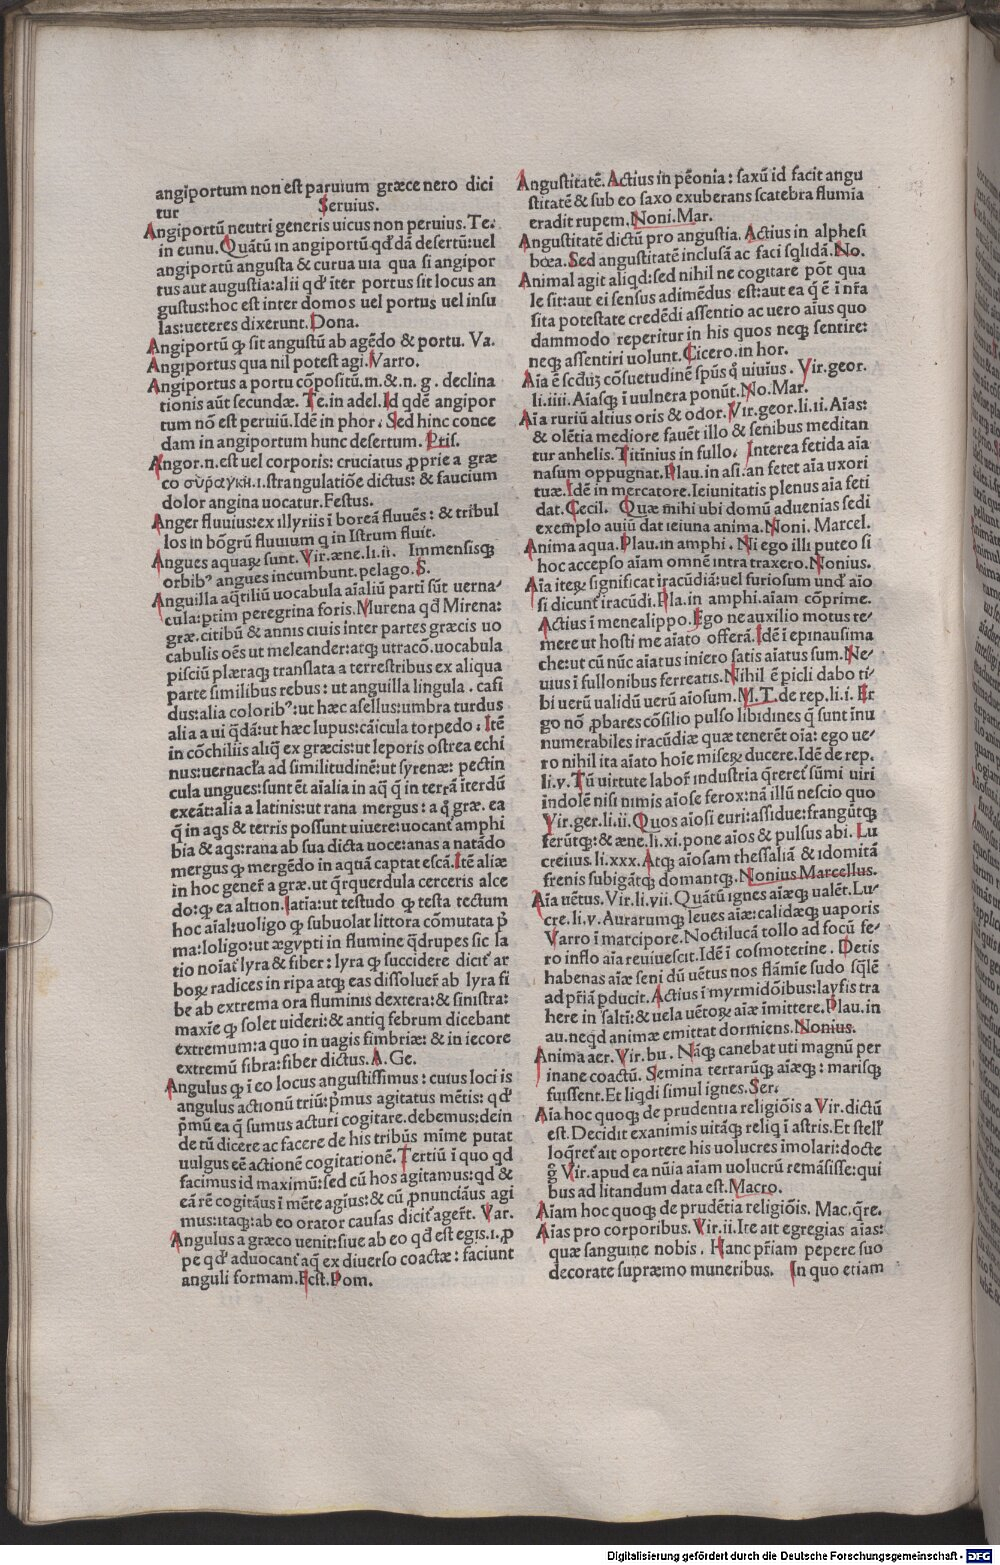 angiportum non est paruium græce nero dici
tur Seruius.
Angiportū neutri generis uicus non peruius. Te.
in eunu. Quātū in angiportū qd' dā desertū: uel
angiportū angusta & curua uia qua si angipor
tus aut augustia: alii qd' iter portus sit locus an
gustus: hoc est inter domos uel portus uel insu
las: ueteres dixerunt. Dona.
Angiportū ꝙ sit angustū ab agēdo & portu. Va.
Angiportus qua nil potest agi. Varro.
Angiportus a portu cōpositū. m. & . n. g. declina
tionis aūt secundæ. Te. in adel. Id qdē angipor
tum nō est peruiū. Idē in phor. Sed hinc conce
dam in angiportum hunc desertum. Pris.
Angor. n. est uel corporis: cruciatus ꝓprie a græ
co .i. strangulatiōe dictus: & faucium
dolor angina uocatur. Festus.
Anger fluuius: ex illyriis ī boreā fluuēs: & tribul
los in bōgrū fluuium q in Istrum fluit.
Angues aquaꝝ sunt. Vir. æne. li. ii. Immensisꝗ
orbibꝰ angues incumbunt. pelago. S.
Anguilla aq̄tiliū uocabula aīaliū parti sūt uerna
cula: ptim peregrina foris. Murena qd Mirena:
græ. citibū & annis ciuis inter partes græcis uo
cabulis oēs ut meleander: atqꝫ utraco. uocabula
pisciū plæraqꝫ translata a terrestribus ex aliqua
parte similibus rebus: ut anguilla lingula. casi
dus: alia coloribꝰ: ut hæc asellus: umbra turdus
alia a ui q̄dā: ut hæc lupus: cāicula torpedo: Itē
in cōchiliis aliq̄ ex græcis: ut leporis ostrea echi
nus: uernacl'a ad similitudinē: ut syrenæ: pectin
cula ungues: sunt ēt aīalia in aq̄ q̄ in terrā iterdū
exeāt: alia a latinis: ut rana mergus: a q̄ græ. ea
q̄ in aqs & terris possunt uiuere: uocant amphi
bia & aqs: rana ab sua dicta uoce: anas a natādo
mergus ꝙ mergēdo in aquā captat escā. Itē aliæ
in hoc gener̄ a græ. ut q̄rquerdula cerceris alce
do: ꝙ ea altion. latia: ut testudo ꝙ testa tectum
hoc aīal: uoligo ꝙ subuolat littora cōmutata p̄
ma: loligo: ut ægypti in flumine q̄drupes sic la
tio noīat' lyra & fiber: lyra ꝙ succidere dicit' ar
boꝝ radices in ripa atqꝫ eas dissoluer̄ ab lyra fi
be ab extrema ora fluminis dextera: & sinistra:
maxīe ꝙ solet uideri: & antiq februm dicebant
extremum: a quo in uagis fimbriæ: & in iecore
extremū fibra: fiber dictus. A. Ge.
Angulus ꝙ ī eo locus angustissimus: cuius loci is
angulus actionū triū: p̄mus agitatus mētis: qd'
p̄mū ea q̄ sumus acturi cogitare. debemus: dein
de tū dicere ac facere de his tribus mīme putat
uulgus eē actionē cogitationē. Tertiū ī quo qd
facimus id maximū: sed cū hos agitamus: qd &
eā rē cogitāus ī mēte agīus: & cū ꝓnunciāus agi
mus: itaqꝫ: ab eo orator causas dicit' ager̄. Var.
Angulus a græco uenit: siue ab eo qd' est egis. i. ꝓ
pe qd' aduocant' aq̄ ex diuerso coactæ: faciunt
anguli formam. Fest. Pom.
Angustitatē. Actius in pēonia: saxū id facit angu
stitatē & sub eo saxo exuberans scatebra fluuia
eradit rupem. Noni. Mar.
Angustitatē dictū pro angustia. Actius in alphesi
bœa. Sed angustitatē inclusā ac faci sq̄lidā. No.
Animal agit aliqd: sed nihil ne cogitare pōt qua
le sit: aut ei sensus adimēdus est: aut ea q̄ ē ī nr̄a
sita potestate credēdi assentio ac uero aīus quo
dammodo reperitur in his quos neqꝫ sentire:
neqꝫ assentiri uolunt. Cicero. in hor.
Aīa ē scdꝫ cōsuetudinē spūs q̄ uiuius. Vir. geor.
li. iiii. Aīasqꝫ ī uulnera ponūt. No. Mar.
Aīa ruriū altius oris & odor. Vir. geor. li. ii. Aīas:
& olētia mediore fauēt illo & senibus meditan
tur anhelis. Titinius in fullo. Interea fetida aīa
nasum oppugnat. Plau. in asi. an fetet aīa uxori
tuæ. Idē in mercatore. Ieiunitatis plenus aīa feti
dat. Cecil. Quæ mihi ubi domū aduenias sedi
exemplo auiū dat ieiuna anima. Noni. Marcel.
Anima aqua. Plau. in amphi. Ni ego illi puteo si
hoc accepso aīam omnē intra traxero. Nonius.
Aīa iteꝝ significat iracūdiā: uel furiosum und' aīo
si dicunt' iracūdi. Pla. in amphi. aīam cōprime.
Actius ī menealippo. Ego ne auxilio motus te
mere ut hosti me aīato offerā. Idē ī epinausima
che: ut cū nūc aīatus iniero satis aīatus sum. Ne
uius ī fullonibus ferreatis. Nihil ē picli dabo ti
bi uerū ualidū uerū aīosum. M. T. de rep. li. i. Er
go nō ꝓbares cōsilio pulso libidines q̄ sunt īnu
numerabiles iracūdiæ quæ tenerēt oīa: ego ue
ro nihil ita aīato hoīe miseꝝ ducere. Idē de rep.
li. v. Tū uirtute labor̄ industria q̄reret' sūmi uiri
indolē nisi nimis aīose ferox: nā illū nescio quo
Vir. ger. li. ii. Quos aīosi euri: assidue: frangūtqꝫ
ferūtqꝫ: & æne. li. xi. pone aīos & pulsus abi. Lu
creius. li. xxx. Atqꝫ aīosam thessaliā & idomitā
frenis subigātqꝫ domantqꝫ. Nonius Marcellus.
Aīa uētus. Vir. li. vii. Quātū ignes aīæqꝫ ualēt. Lu
cre. li. v. Aurarumqꝫ leues aīæ: calidæqꝫ uaporis
Varro ī marcipore. Noctilucā tollo ad focū fe
ro inflo aīa reuiuescit. Idē ī cosmoterine. Detis
habenas aīæ seni dū uētus nos flāmīe sudo sq̄lē
ad p̄riā pducit. Actius ī myrmidōibus: layfis tra
here in salti: & uela uētoꝝ aīæ īmittere. Plau. in
au. neqd animæ emittat dormiens. Nonius.
Anima aer. Vir. bu. Nāqꝫ canebat uti magnū per
inane coactū. Semina terrarūqꝫ aīæqꝫ: marisqꝫ
fuissent. Et liqdi simul ignes. Ser.
Aīa hoc quoqꝫ de prudentia religiōis a Vir. dictū
est. Decidit exanimis uitāqꝫ reliq ī astris. Et stell'
loq̄ret' ait oportere his uolucres īmolari: docte
ḡ Vir. apud ea nūia aīam uolucrū remāsisse: qui
bus ad litandum data est. Macro.
Aīam hoc quoqꝫ de prudētia religiōis. Mac. q̄re.
Aīas pro corporibus. Vir. ii. Ite ait egregias aīas:
quæ sanguine nobis. Hanc pr̄iam pepere suo
decorate supræmo muneribus. In quo etiam
Digitalisierung gefördert durch die Deutsche Forschungsgemeinschaft - DFG